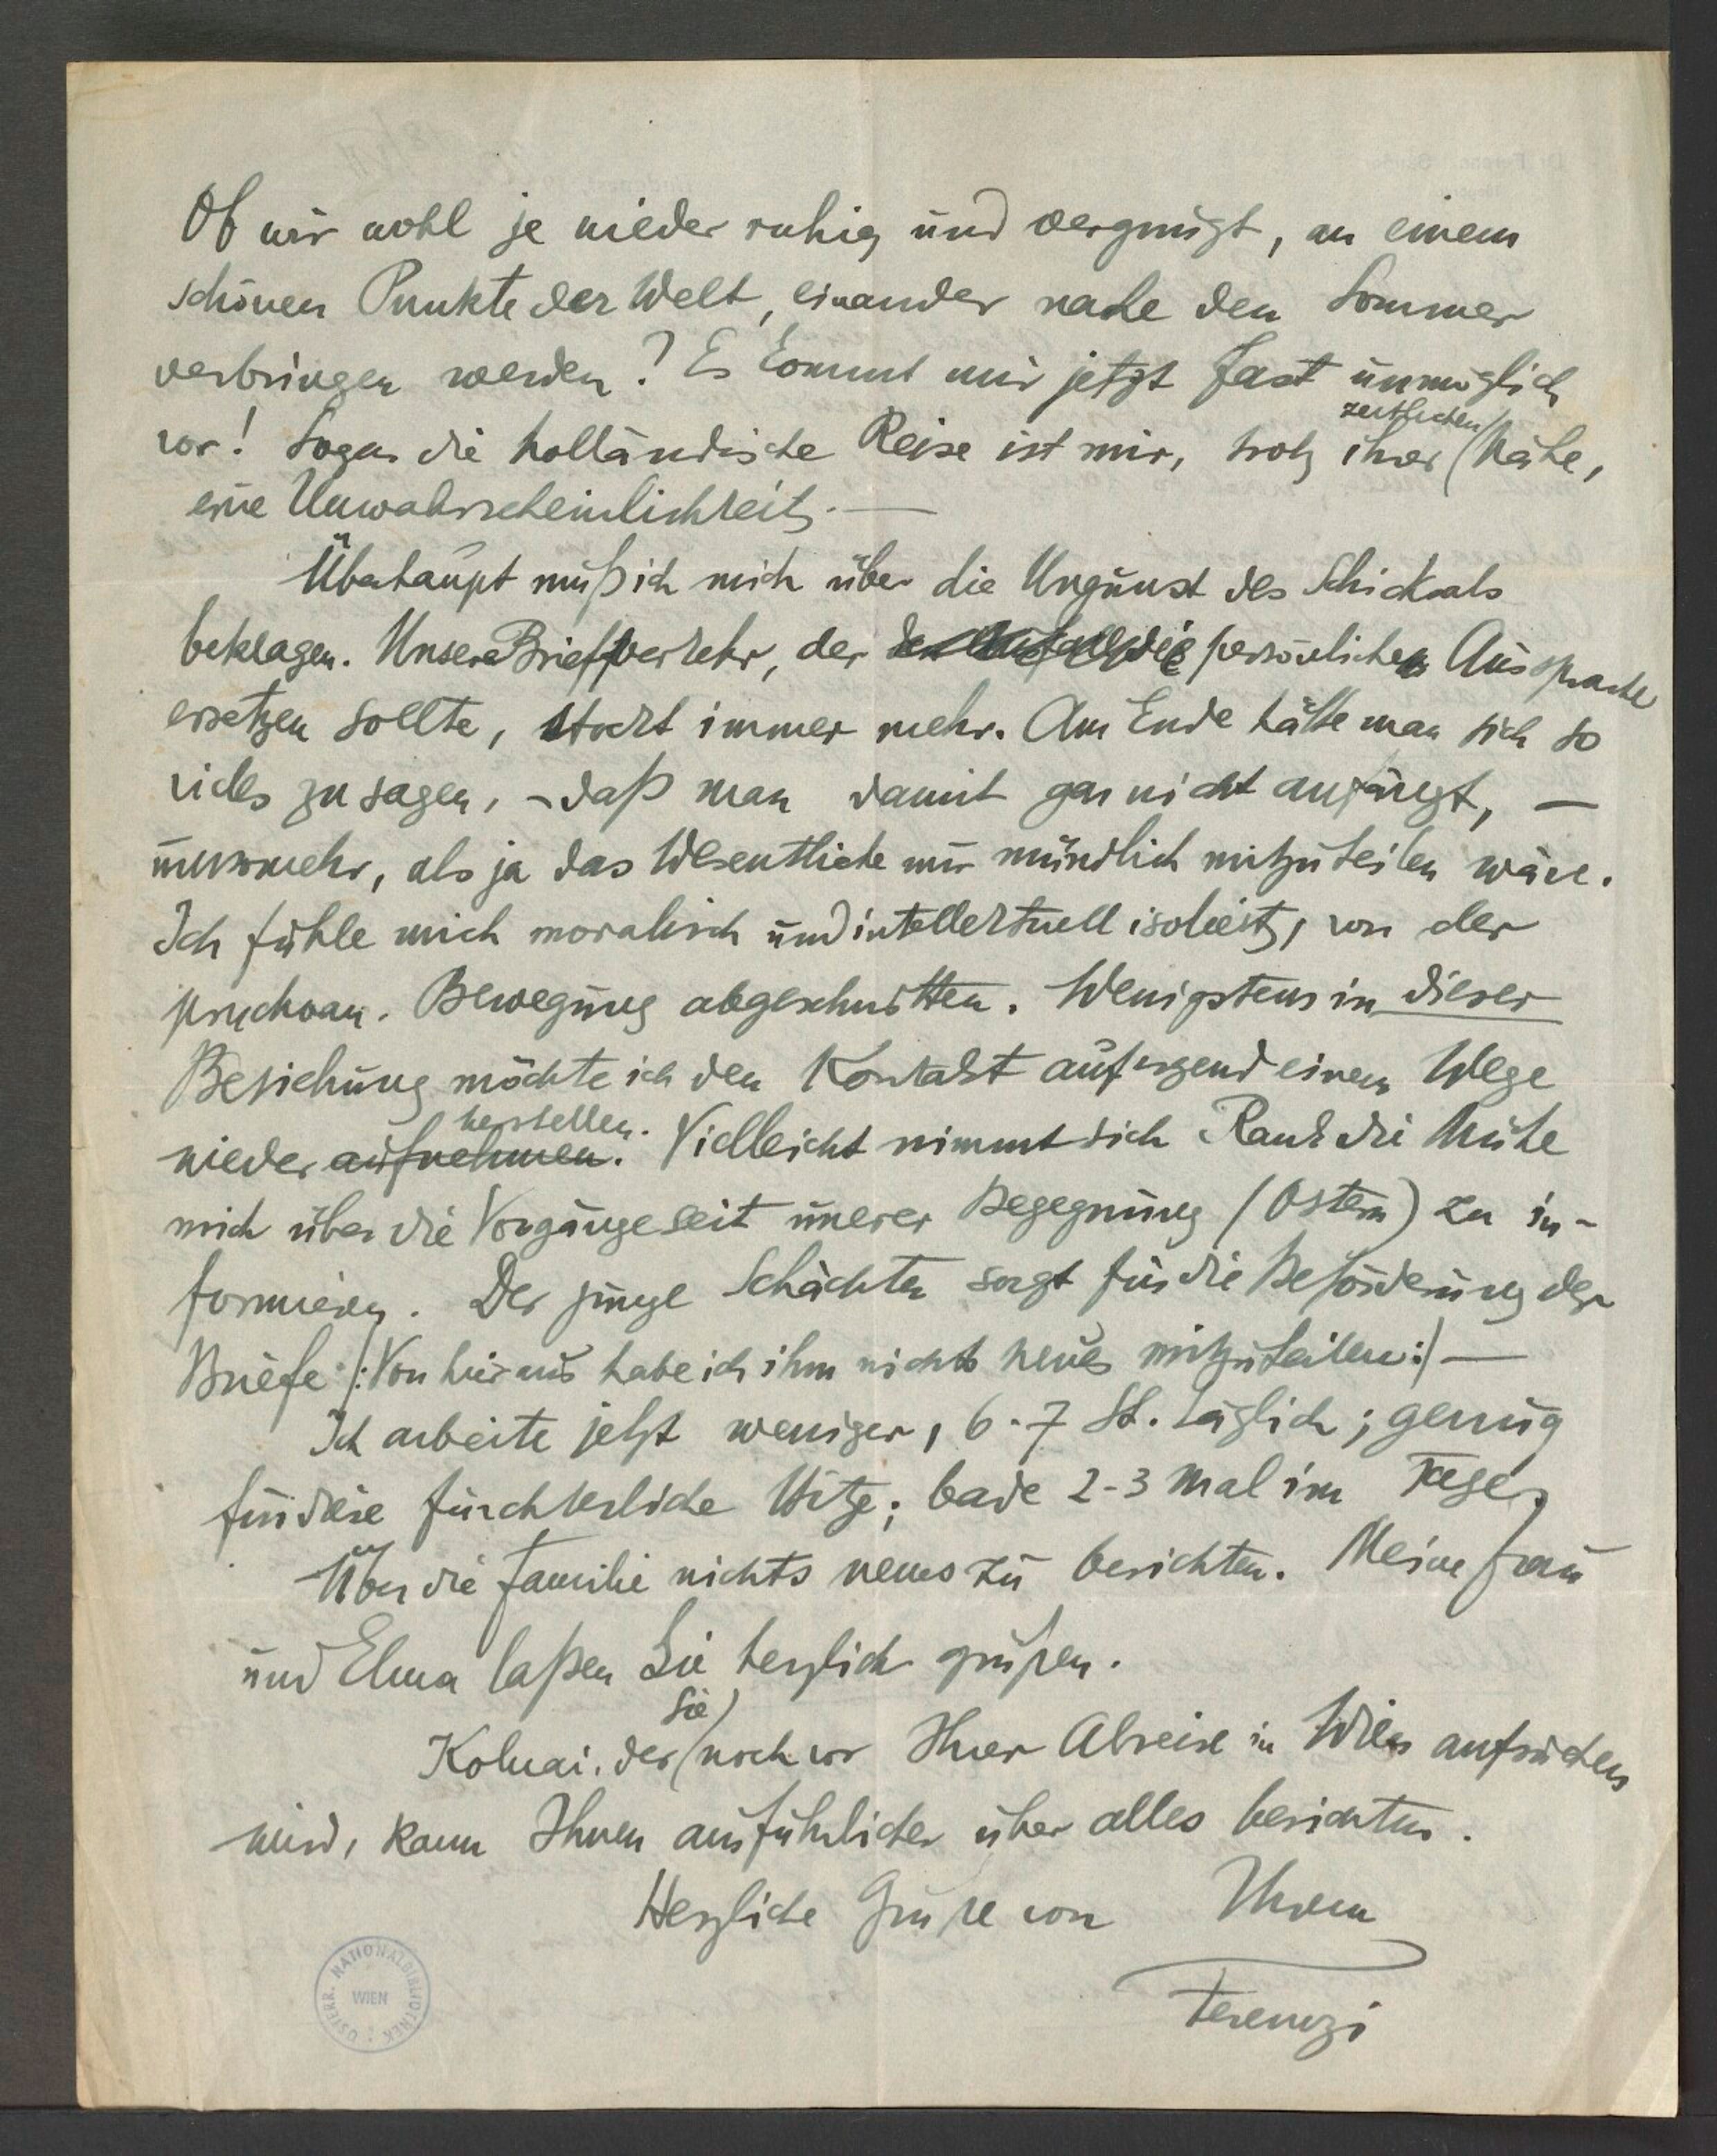 Ob wir wohl je wieder ruhig und vergnügt, an einem
schönen Punkte der Welt, einander nahe den Sommer
verbringen werden? Es kommt mir jetzt fast unmöglich
vor! Sogar die holländische Reise ist mir, trotz ihrer zeitlichen Nähe,
eine Unwahrscheinlichkeit. —
Überhaupt muß ich mich über die Ungunst des Schicksals
beklagen. Unser Briefverkehr, der die persönliche Aussprache
ersetzen sollte, stockt immer mehr. Am Ende hätte man sich so
vieles zu sagen, – daß man damit gar nicht anfängt, —
umsomehr, als ja das Wesentliche nur mündlich mitzuteilen wäre.
Ich fühle mich moralisch und intellektuell isoliert, von der
psychoan. Bewegung abgeschnitten. Wenigstens in dieser
Beziehung möchte ich den Kontakt auf irgend einem Wege
wieder aufnehmen. herstellen. Vielleicht nimmt sich Rank die Mühe
mich über die Vorgänge seit unserer Begegnung (Ostern) zu in-
formieren. Der junge Schächter sorgt für die Beförderung der
Briefe /: Von hier aus habe ich ihm nichts neues mitzuteilen :/ —
Ich arbeite jetzt weniger, 6-7 St. täglich; genug
für diese fürchterliche Hitze; bade 2-3 Mal im Tage.
Über die Familie nichts neues zu berichten. Meine Frau
und Elma laßen Sie herzlich grüßen.
Kolnai, der Sie noch vor Ihrer Abreise in Wien aufsuchen
wird, kann Ihnen ausführlicher über alles berichten.
Herzliche Grüße von Ihrem
Ferenczi
ÖSTERR. NATIONALBIBLIOTHEK
WIEN